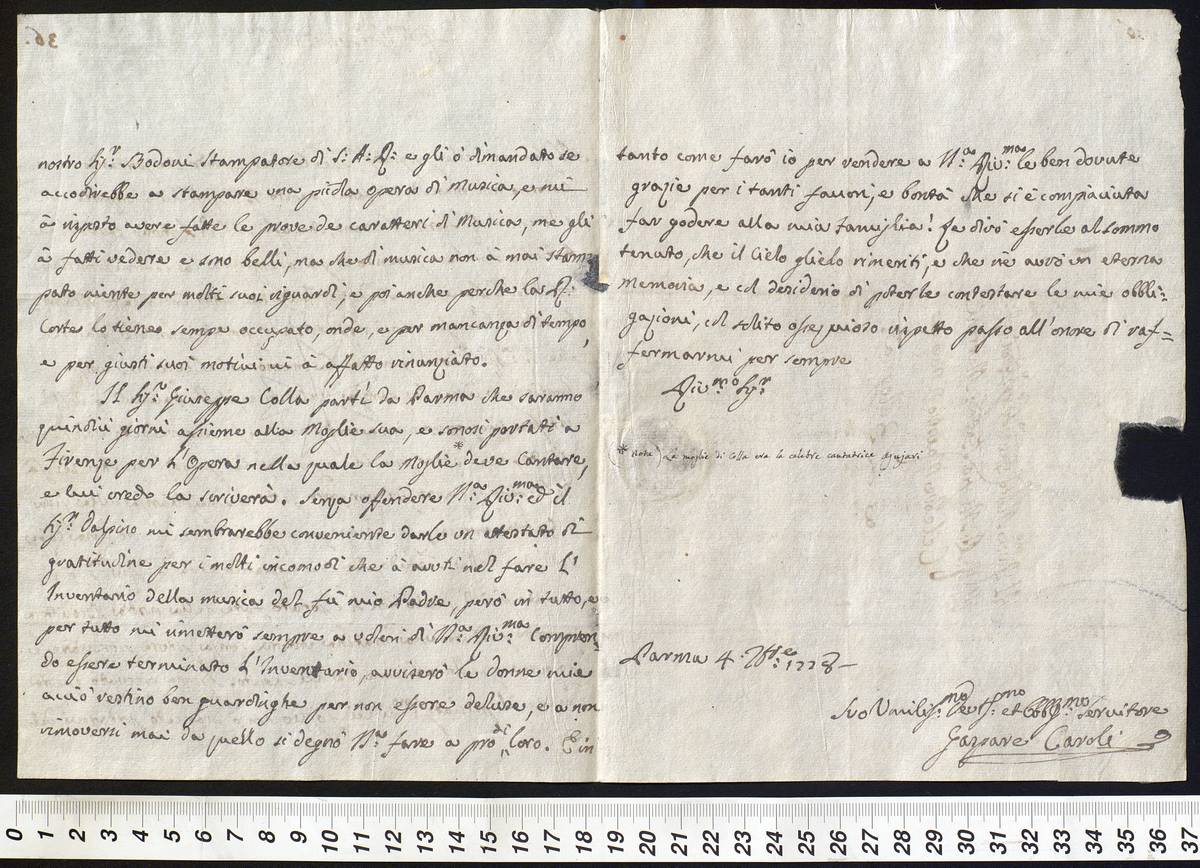 36.
nostro Sig:r Bodoni stampatore di S: A: R: e gli ò dimandato se
accodirebbe a stampare una picola opera di Musica, e mi
à risposto avere fatte le prove de caratteri di Musica, me gli
à fatti vedere e sono belli, ma che di musica non à mai stam
pato niente per molti suoi riguardi, e poi anche perche la R:
Corte lo tiene sempre occupato, onde, e per mancanza di tempo,
e per giusti suoi motivi vi à affatto rinunziato.
Il Sig:r Giuseppe Colla partì da Parma che saranno
quindici giorni assieme alla Moglie sua, e sonosi portati a
Firenze per l'Opera nella quale la Moglie * deve Cantare,
e lui credo la scriverà. Senza offendere V:a Riv:ma ed il
Sig:r Dalpino mi sembrarebbe conveniente darle un attestato di
gratitudine per i molti incomodi che à avuti nel fare L'
Inventario della musica del fù mio Padre, però in tutto, e
per tutto mi rimetterò sempre a voleri di V:a Riv:ma Compren
do essere terminato L'Inventario, avviserò le donne mie
acciò restino ben guardighe per non essere deluse, e a non
rimoversi mai da quello si degnò V:a fare a prò di loro. E in
tanto come farò io per rendere a V:a Riv:ma le ben dovute
grazie per i tanti favori, e bontà che si è compiaciuta
far godere alla mia famiglia! Le dirò esserle al sommo
tenuto, che il Cielo glielo rimeriti, e che ne avrò un eterna
memoria, e col desiderio di poterle contestare le mie obbli=
gazioni, col solito ossequioso rispetto passo all'onore di raf=
fermarmi per sempre
Riv:mo Sig:r
(* Nota) La moglie di Colla era la celebre cantatrice Agujari
Parma 4: 7bre: 1778-
Suo Umilis:mo Dev:mo et Obblig:mo Servitore
Gaspare Caroli